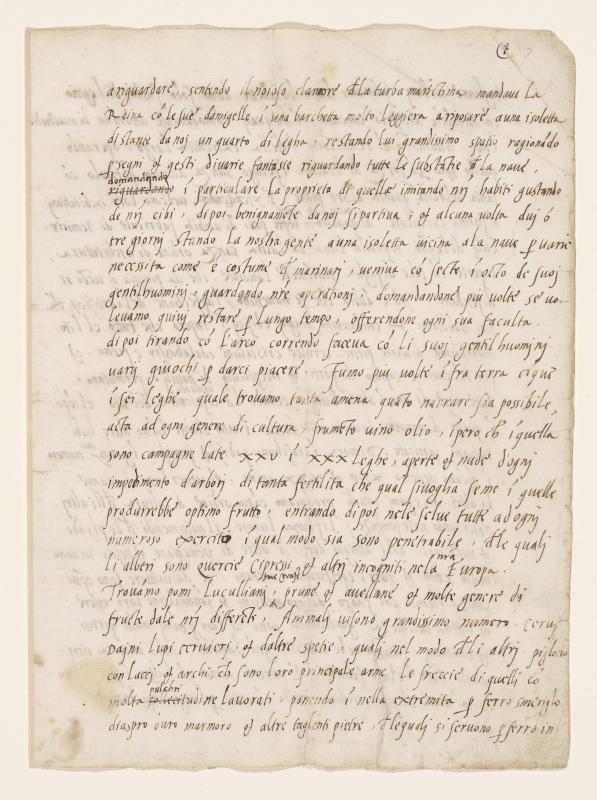 4 7
a riguardare, sentendo il noioso clamore d la turba marictima mandava la
Reina cō le sue damigelle ī una barchetta molto leggiera a riposare a una isoletta
distante da noj un quarto di legha, restando lui grandissimo spatio ragionādo
p segni & gesti di varie fantasie riguardando tutte le substātie d la nave,
domandando
riguardando ī particulare la proprieta di quelle imitando nrj habiti gustando
de nrj cibi, dipoi benignamēte da noj si partiva, & alcuna volta duj o
tre giorni stando la nostra gente a una isoletta vicina a la nave p varie
necessita come è costume d marinarj, veniva cō secte ī octo de suoj
gentilhuominj, guardando nr̄e operationj, domandandone piu volte se vo-
levamo quivj restare p lungo tempo, offerendone ogni sua faculta.
dipoi tirando cō l'arco correndo faceva cō li suoj gentilhuominj
varij giuochi p darci piacere. Fumo piu volte ī fra terra cīque
ī sei leghe quale trovamo tanta amena quāto narrare sia possibile,
acta ad ogni genere di cultura, frumēto vino olio, īpero ch' ī quella
sono campagne late XXV ī XXX leghe, aperte & nude d'ognj
impedimento d'arborj di tanta fertilita che qual sivoglia seme ī quelle
produrrebbe optimo frutto, entrando dipoi nele selve tutte ad ognj
numeroso exercito ī qual modo sia sono penetrabile, d le qualj
li alberi sono quercie cipressi & altrj incogniti nela nr̄a Europa.
Trovamo pomi Lucullianj, prune & avellane & molte genere di
fructe da le nrj differēti, Animalj vi sono grandissimo numero cervj
Dajni lupi cervierj & d'altre spetie, qualj nel modo d li altrj pigliono
con laccj & archi, ch' sono loro principale arme. le freccie di quelli cō
molta pulchritudine lavorati ponendo ī nella extremita p ferro smeriglo
diaspro duro marmoro & altre taglenti pietre, d le qualj si servono p ferro in